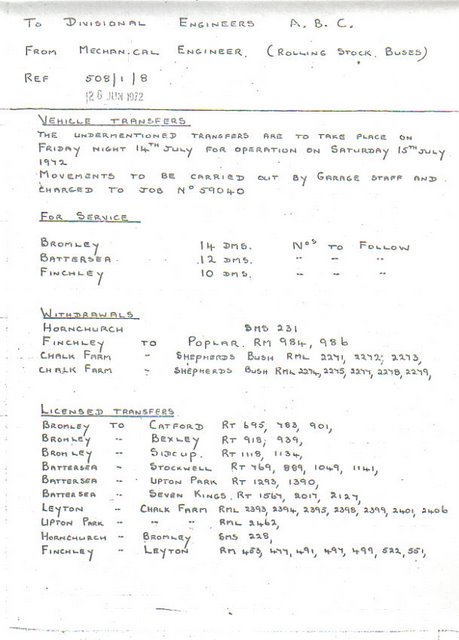 To Divisional Engineers A.B.C.
From Mechanical Engineer. (Rolling Stock. Buses)
Ref 508/1/8
26 JUN 1972
Vehicle Transfers
The undermentioned transfers are to take place on
Friday night 14TH July for operation on Saturday 15TH July
1972
Movements to be carried out by Garage staff and
charged to Job No 59040
For Service
Bromley 14 DMS. Nos to Follow
Battersea. 12 DMS. " " "
Finchley 10 DMS. " " "
Withdrawals
Hornchurch SMS 231
Finchley to Poplar. RM 984, 986
Chalk Farm " Shepherds Bush RML 2271, 2272, 2273,
Chalk Farm " Shepherds Bush RML 2274, 2275, 2277, 2278, 2279,
Licensed Transfers
Bromley to Catford RT 695, 783, 901,
Bromley " Bexley RT 918, 939,
Bromley " Sidcup. RT 1118, 1134,
Battersea " Stockwell RT 769, 889, 1049, 1141,
Battersea " Upton Park RT 1293, 1390,
Battersea " Seven Kings. RT 1567, 2017, 2127,
Leyton " Chalk Farm RML 2393, 2394, 2395, 2398, 2399, 2401, 2406
Upton Park " " " RML 2462,
Hornchurch " Bromley SMS 228,
Finchley " Leyton RM 453, 477, 491, 497, 499, 522, 551,